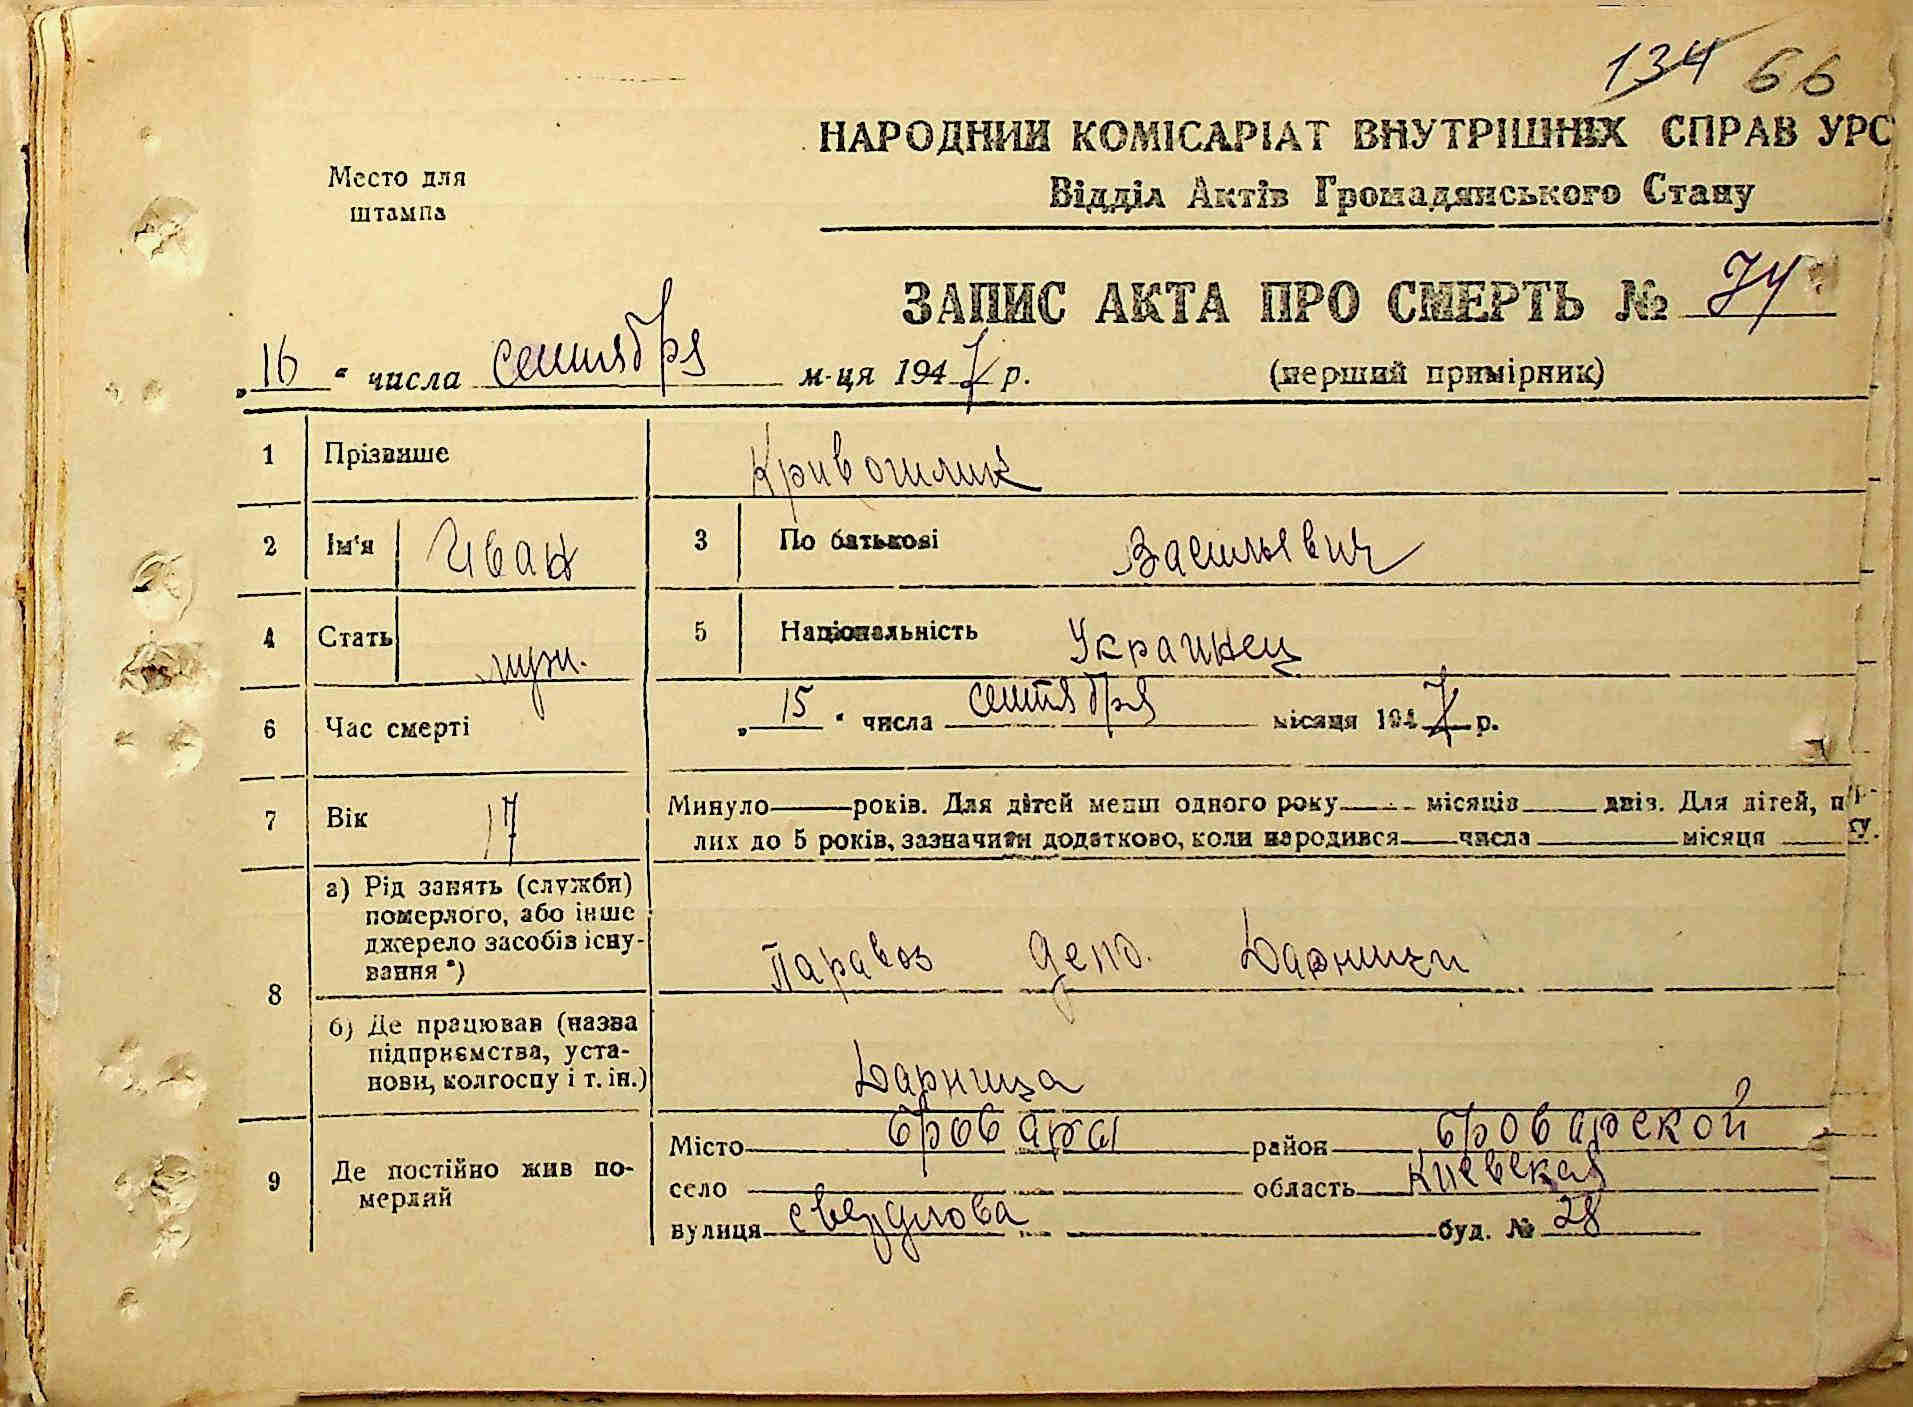 134 66
НАРОДНИЙ КОМІСАРІАТ ВНУТРІШНІХ СПРАВ УРС
Место для
штампа
Відділ Актів Громадянського Стану
ЗАПИС АКТА ПРО СМЕРТЬ № 74
„16“ числа сентября м-ця 1947 р.
(перший примірник)
1 Прізвище Кривошлик
2 Ім'я Иван 3 По батькові Васильевич
4 Стать муж. 5 Національність Украинец
6 Час смерті „15“ числа сентября місяця 1947 р.
7 Вік 17 Минуло — років. Для дітей менш одного року — місяців — днів. Для дітей, п
лих до 5 років, зазначити додатково, коли народився — числа — місяця
8 а) Рід занять (служби)
померлого, або інше
джерело засобів існу-
вання *)
Паравоз депо. Дарници
б) Де працював (назва
підприємства, уста-
нови, колгоспу і т. ін.)
Дарница
9 Де постійно жив по-
мерлий
Місто Бровары район Броварской
село область Киевская
вулиця Свердлова буд. № 28